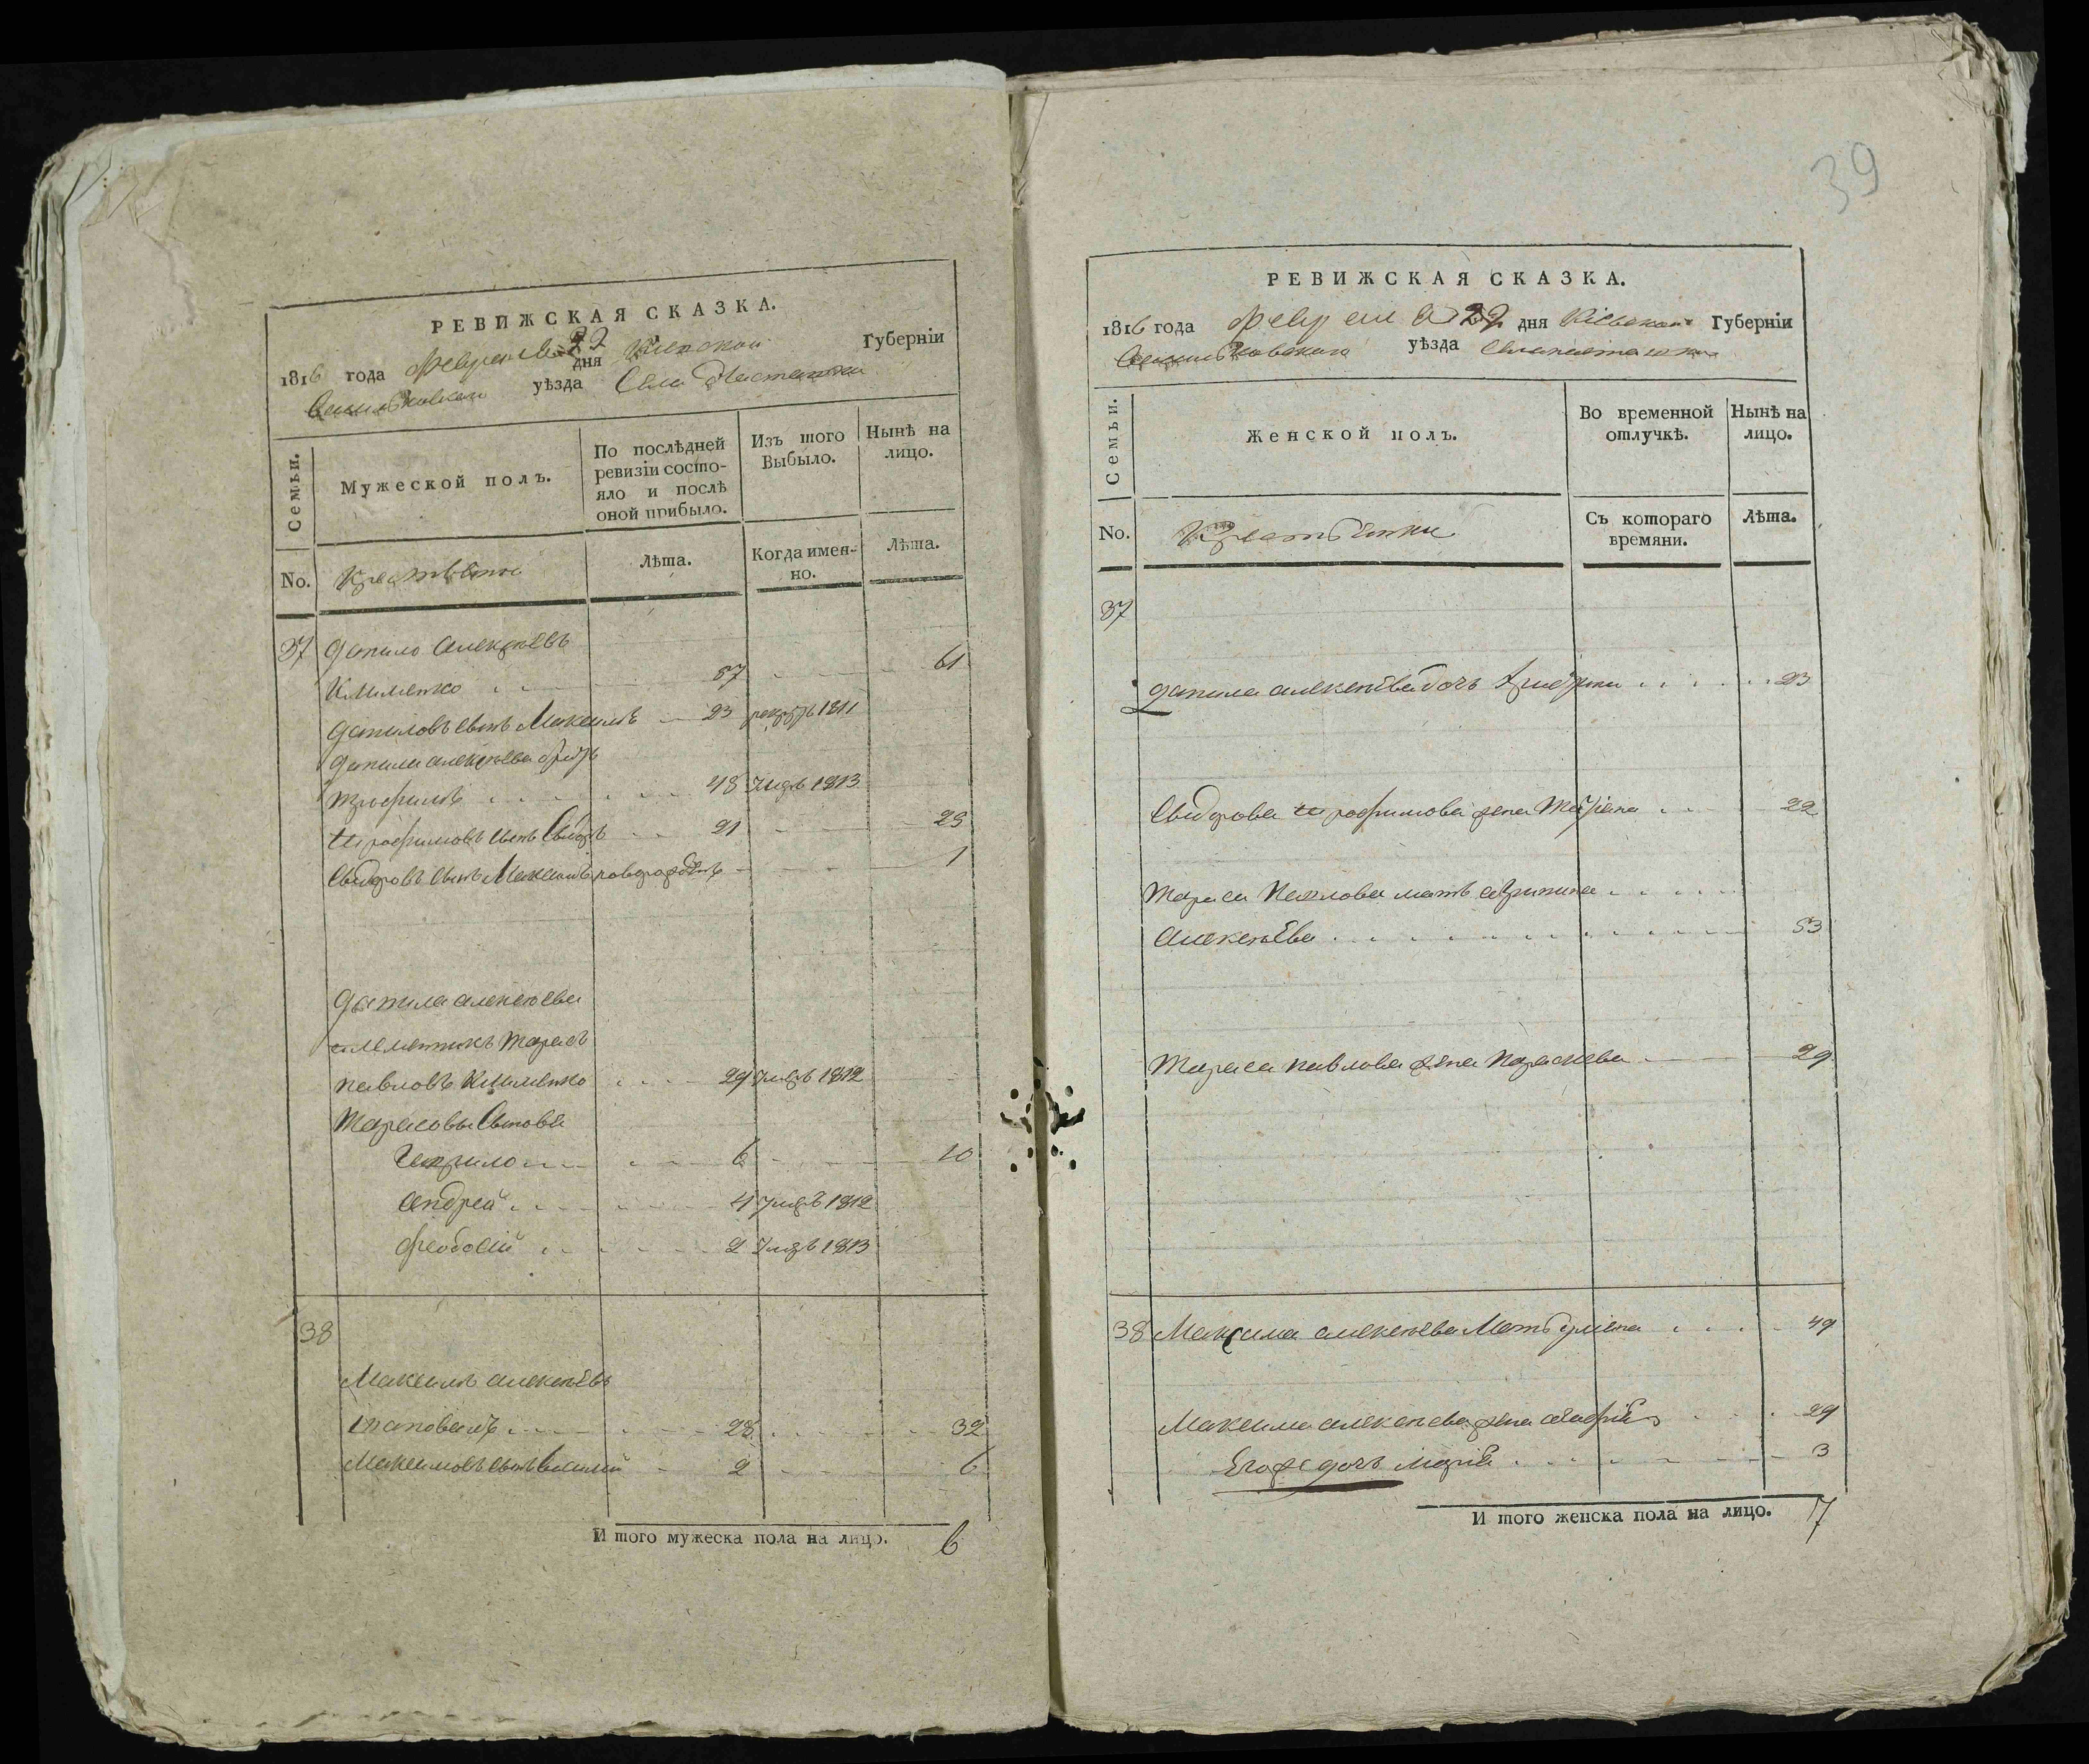 РЕВИЖСКАЯ СКАЗКА.
1816 года Февраля 22 дня Кіевской Губерніи
Васильковской уѣзда Села
Семьи.
Мужеской полъ.
По послѣдней ревизіи состояло и послѣ оной прибыло.
Изъ того Выбыло.
Нынѣ на лицо.
No.
Крестьяне
Лѣта.
Когда именно.
Лѣта.
37 Данило Алексѣевъ
Клименко 57 61
Даниловъ сынъ Максимъ 23 рекрутъ 1811
Данила алексѣева братъ
Трофимъ 48 Умръ 1813
Трофимовъ сынъ Свидръ 21 25
Свидровъ сынъ Максимъ новорожденъ 1
Данила алексѣева
племянникъ Тарасъ
павловъ Клименко 29 Умръ 1812
Тарасовы Сыновья
Гаврило 6 10
Андрей 4 Умръ 1812
Феодосій 2 Умръ 1813
38
Максимъ алексѣевъ
28 32
Максимовъ сынъ Василий 2 6
И того мужеска пола на лицо. 6
39
РЕВИЖСКАЯ СКАЗКА.
1816 года Февраля 22 дня Кіевской Губерніи
Васильковской уѣзда
Семьи.
Женской полъ.
Во временной отлучкѣ.
Нынѣ на лицо.
No.
Крестьянки
Съ котораго времяни.
Лѣта.
37
данила алексѣева дочь 23
Свидрова трофимова жена Марѣна 22
Тараса Павлова мать агрипина
Алексѣева 53
Тараса павлова жена Параскева 29
38 Максима алексѣева Мать 49
Максима алексѣева жена 29
Его же дочь Марія 3
И того женска пола на лицо. 7